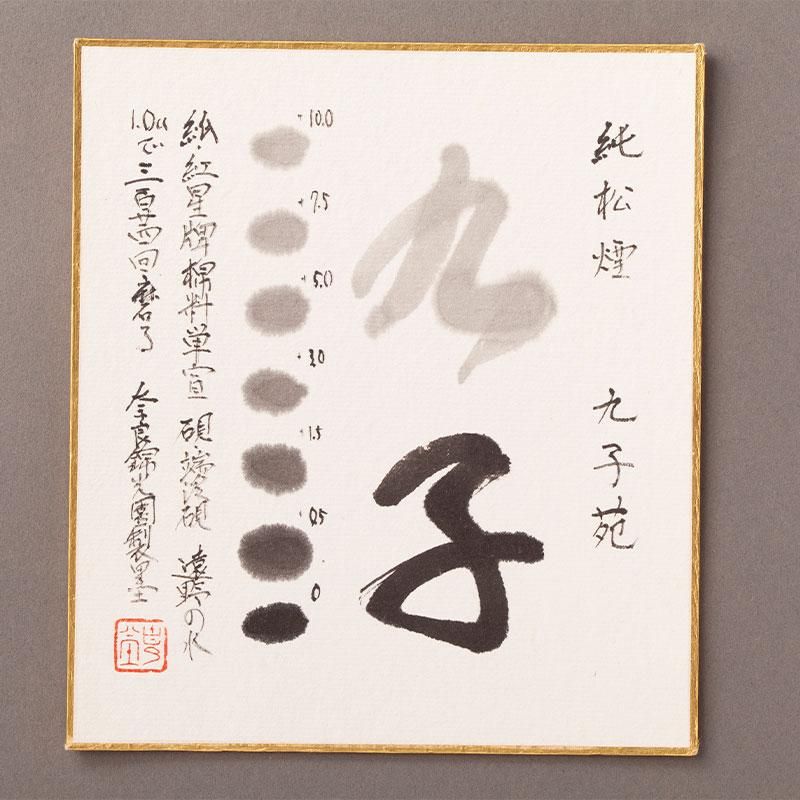 純松煙 九子苑
九
子
10.0
7.5
5.0
3.0
1.5
0.5
0
紙・紅星牌棉料単宣 硯・端渓硯 遠野の水
1.0ccで三百廿四回磨る 奈良錦光園製墨